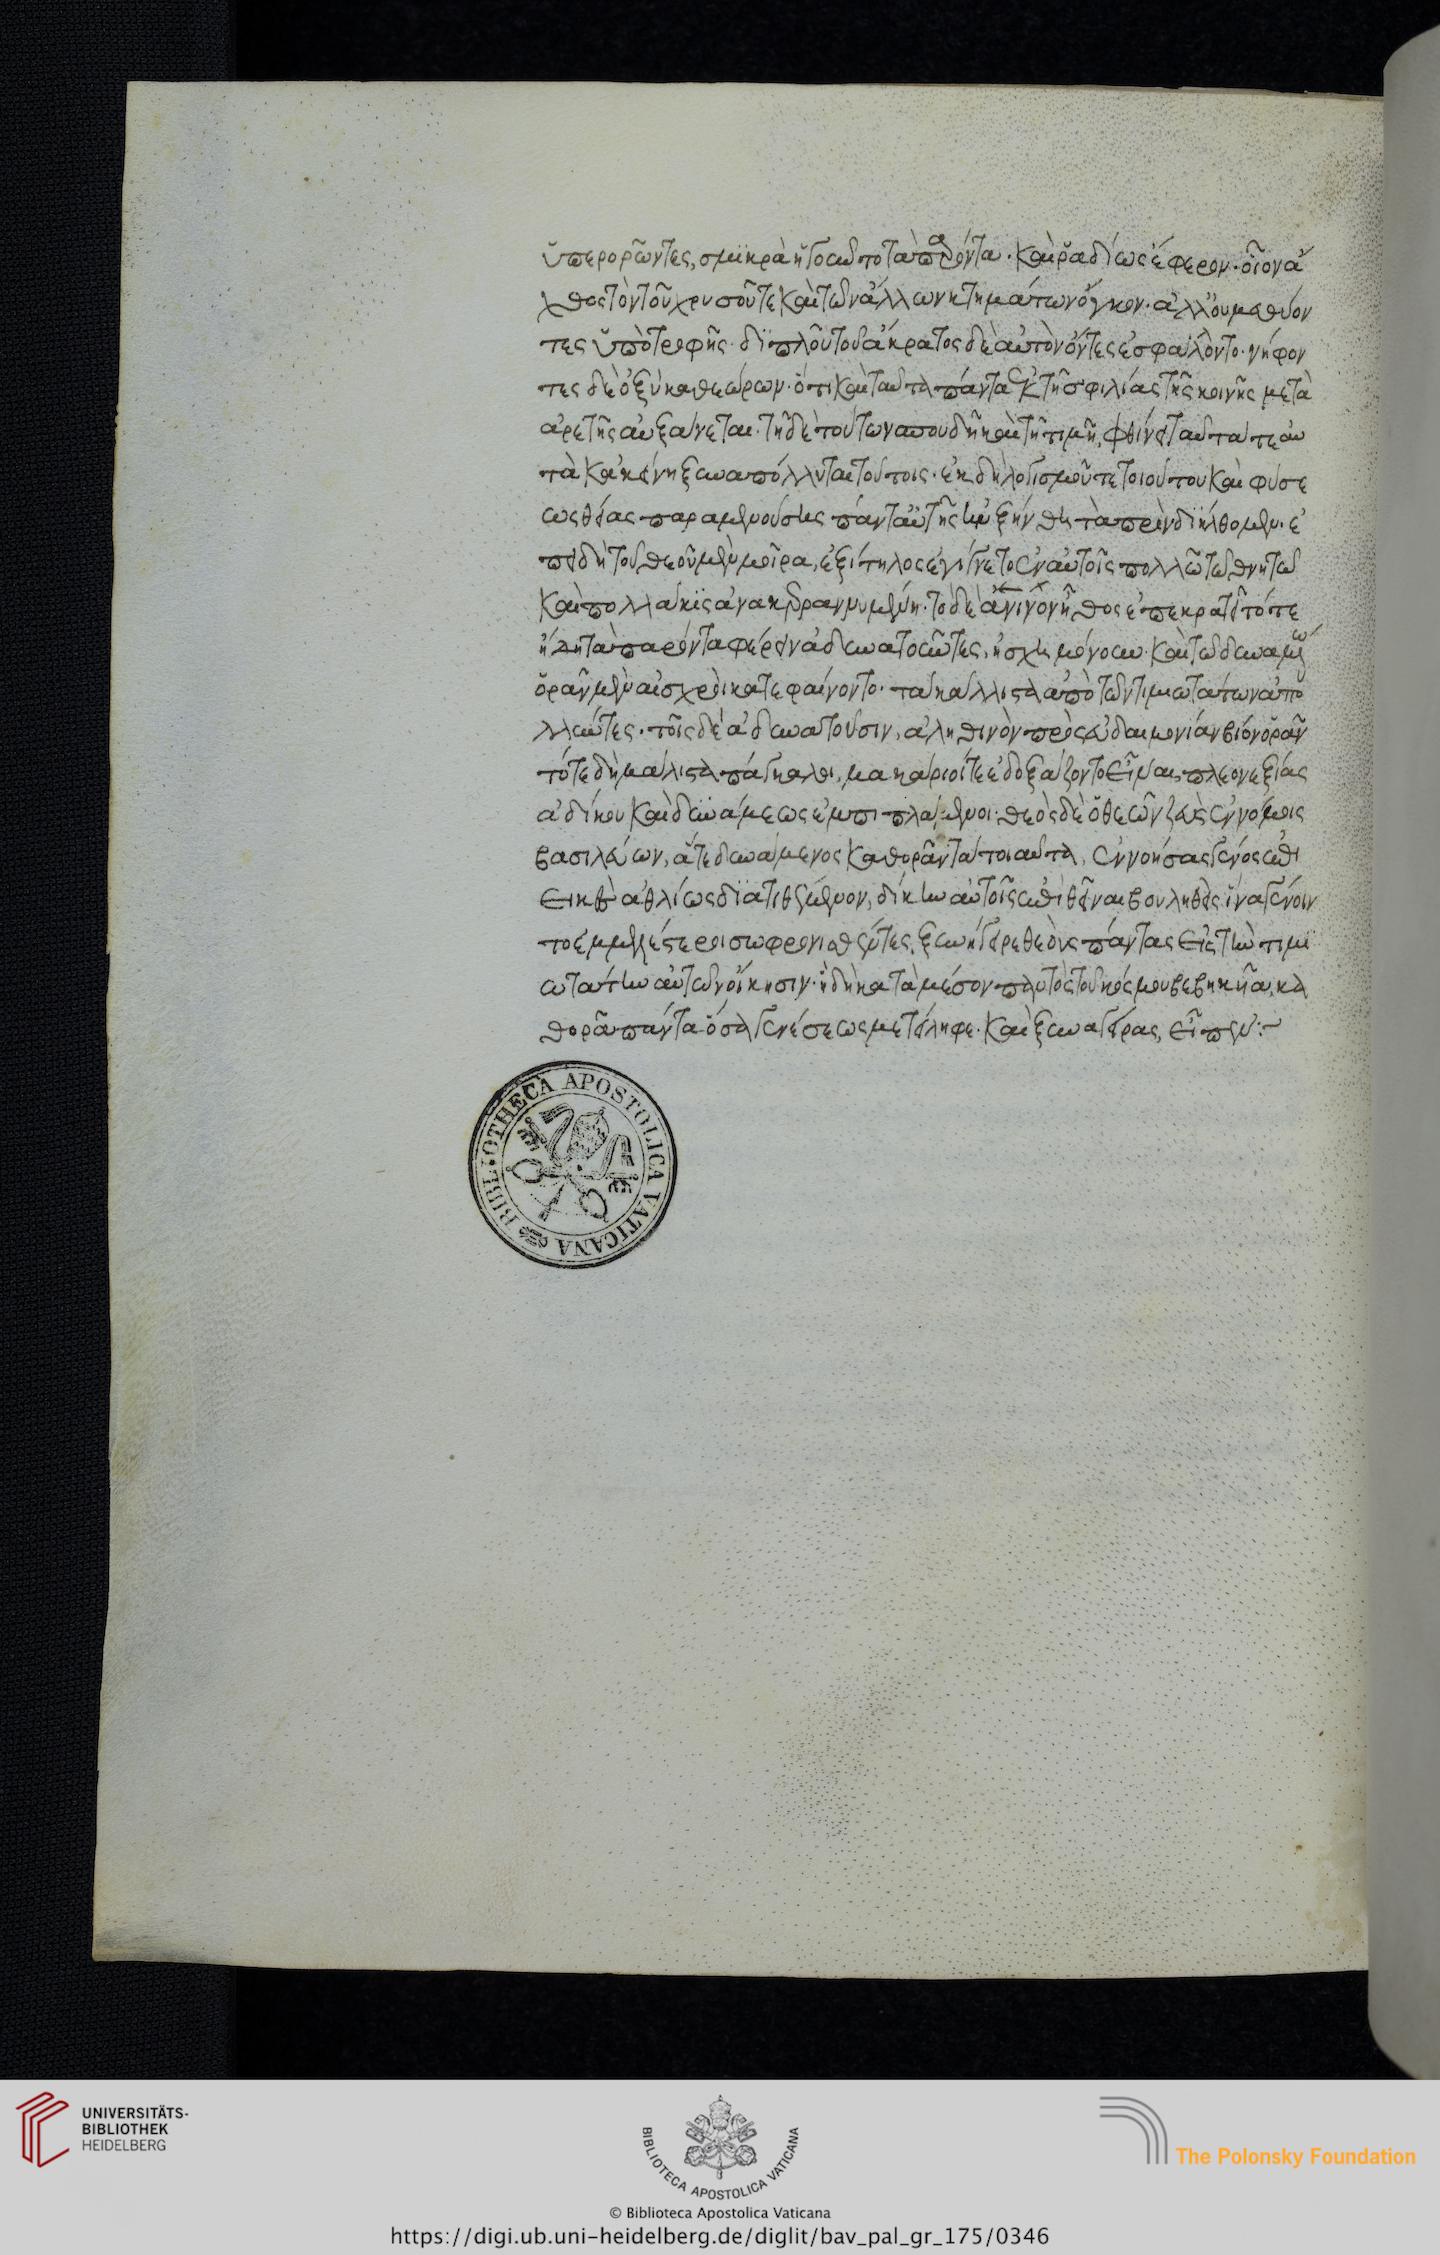 ὑπερορῶντες, σμϊκρὰ ἡγοῦντο τὰ παρόντα· καὶ ῥαδίως ἔφερον· οἷον ἄ
χθος τὸν τοῦ χρυσοῦ τε καὶ τῶν ἄλλων κτημάτων ὄγκον· ἀλλ' οὐ μεθύον
τες ὑπὸ τρυφῆς· διὰ πλοῦτον ἀκράτορες αὐτῶν ὄντες ἐσφάλλοντο· νήφον
τες δὲ ὀξὺ καθεώρων· ὅτι καὶ ταῦτα πάντα ἐκ τῆς φιλίας τῆς κοινῆς μετὰ
ἀρετῆς αὐξάνεται· τῇ δὲ τούτων σπουδῇ καὶ τιμῇ, φθίνει ταῦτά τε αὐ
τὰ κἀκείνη ξυναπόλλυται τούτοις· ἐκ δὴ λογισμοῦ τε τοιούτου καὶ φύσε
ως θείας παραμενούσης πάντ' αὐτοῖς ηὐξήθη τὰ πρὶν διήλθομεν· ἐ
πεὶ δὴ τοῦ θεοῦ μὲν μοῖρα, ἐξίτηλος ἐγίγνετο ἐν αὐτοῖς πολλῷ τῷ θνητῷ
καὶ πολλάκις ἀνακεραννυμένη· τὸ δὲ ἀνθρώπινον ἦθος ἐπεκράτει τότε
ἤδη τὰ παρόντα φέρειν ἀδυνατοῦντες, ἠσχημόνουν· καὶ τῷ δυναμένῳ
ὁρᾶν μὲν αἰσχροὶ κατεφαίνοντο· τὰ κάλλιστα ἀπὸ τῶν τιμιωτάτων ἀπο
λλύντες· τοῖς δὲ ἀδυνατοῦσιν, ἀληθινὸν πρὸς εὐδαιμονίαν βίον ὁρᾶν
τότε δὴ μάλιστα πάγκαλοι, μακάριοί τε ἐδοξάζοντο εἶναι, πλεονεξίας
ἀδίκου καὶ δυνάμεως ἐμπιπλάμενοι· θεὸς δὲ ὁ θεῶν ζεὺς ἐν νόμοις
βασιλεύων, ἅτε δυνάμενος καθορᾶν τὰ τοιαῦτα, ἐννοήσας γένος ἐπι
εικὲς ἀθλίως διατιθέμενον, δίκην αὐτοῖς ἐπιθεῖναι βουληθεὶς ἵνα γένοιν
το ἐμμελέστεροι σωφρονισθέντες, ξυνήγειρε θεοὺς πάντας εἰς τὴν τιμι
ωτάτην αὐτῶν οἴκησιν· ἣ δὴ κατὰ μέσον παντὸς τοῦ κόσμου βεβηκυῖα, κα
θορᾷ πάντα ὅσα γενέσεως μετείληφε· καὶ ξυναγείρας, εἶπεν:~
BIBLIOTHECA APOSTOLICA VATICANA
UNIVERSITÄTS-
BIBLIOTHEK
HEIDELBERG
BIBLIOTECA APOSTOLICA VATICANA
The Polonsky Foundation
© Biblioteca Apostolica Vaticana
https://digi.ub.uni-heidelberg.de/diglit/bav_pal_gr_175/0346